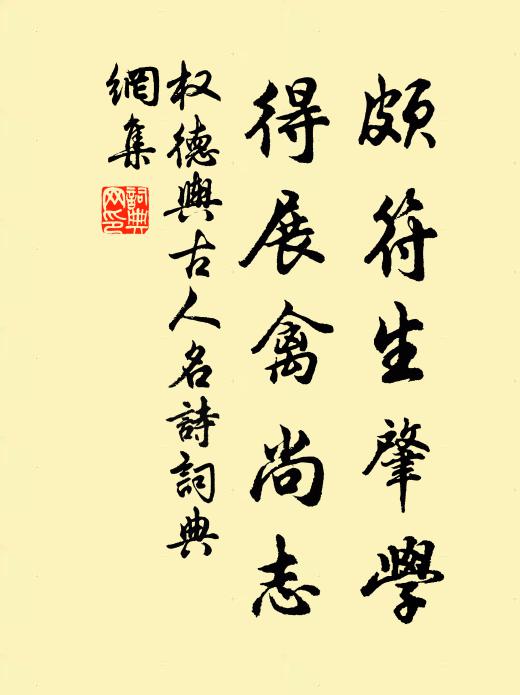 頗符生肇學
得展禽尚志
权德輿古人名詩詞典
網集
詞典
网印